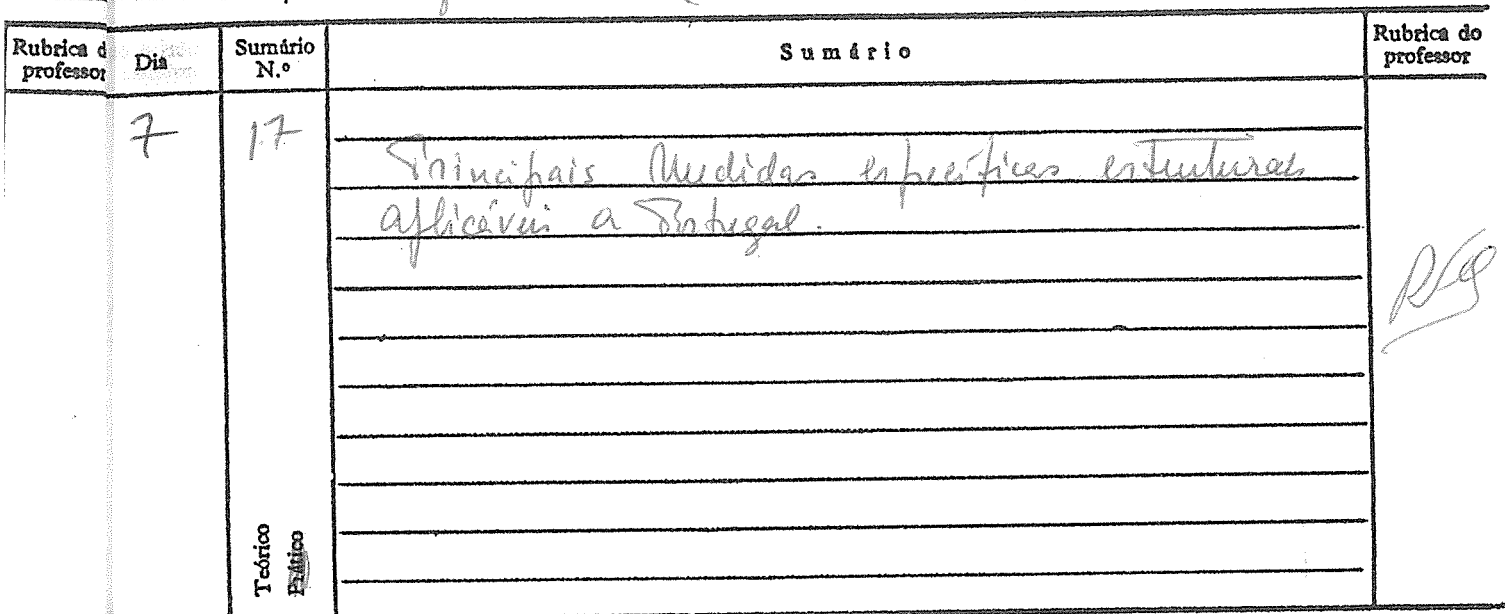 Rubrica d professor Dia Sumário N.º Sumário Rubrica do professor
7 17 Principais Medidas específicas estruturais
aplicáveis a Portugal.
Teórico
Prático